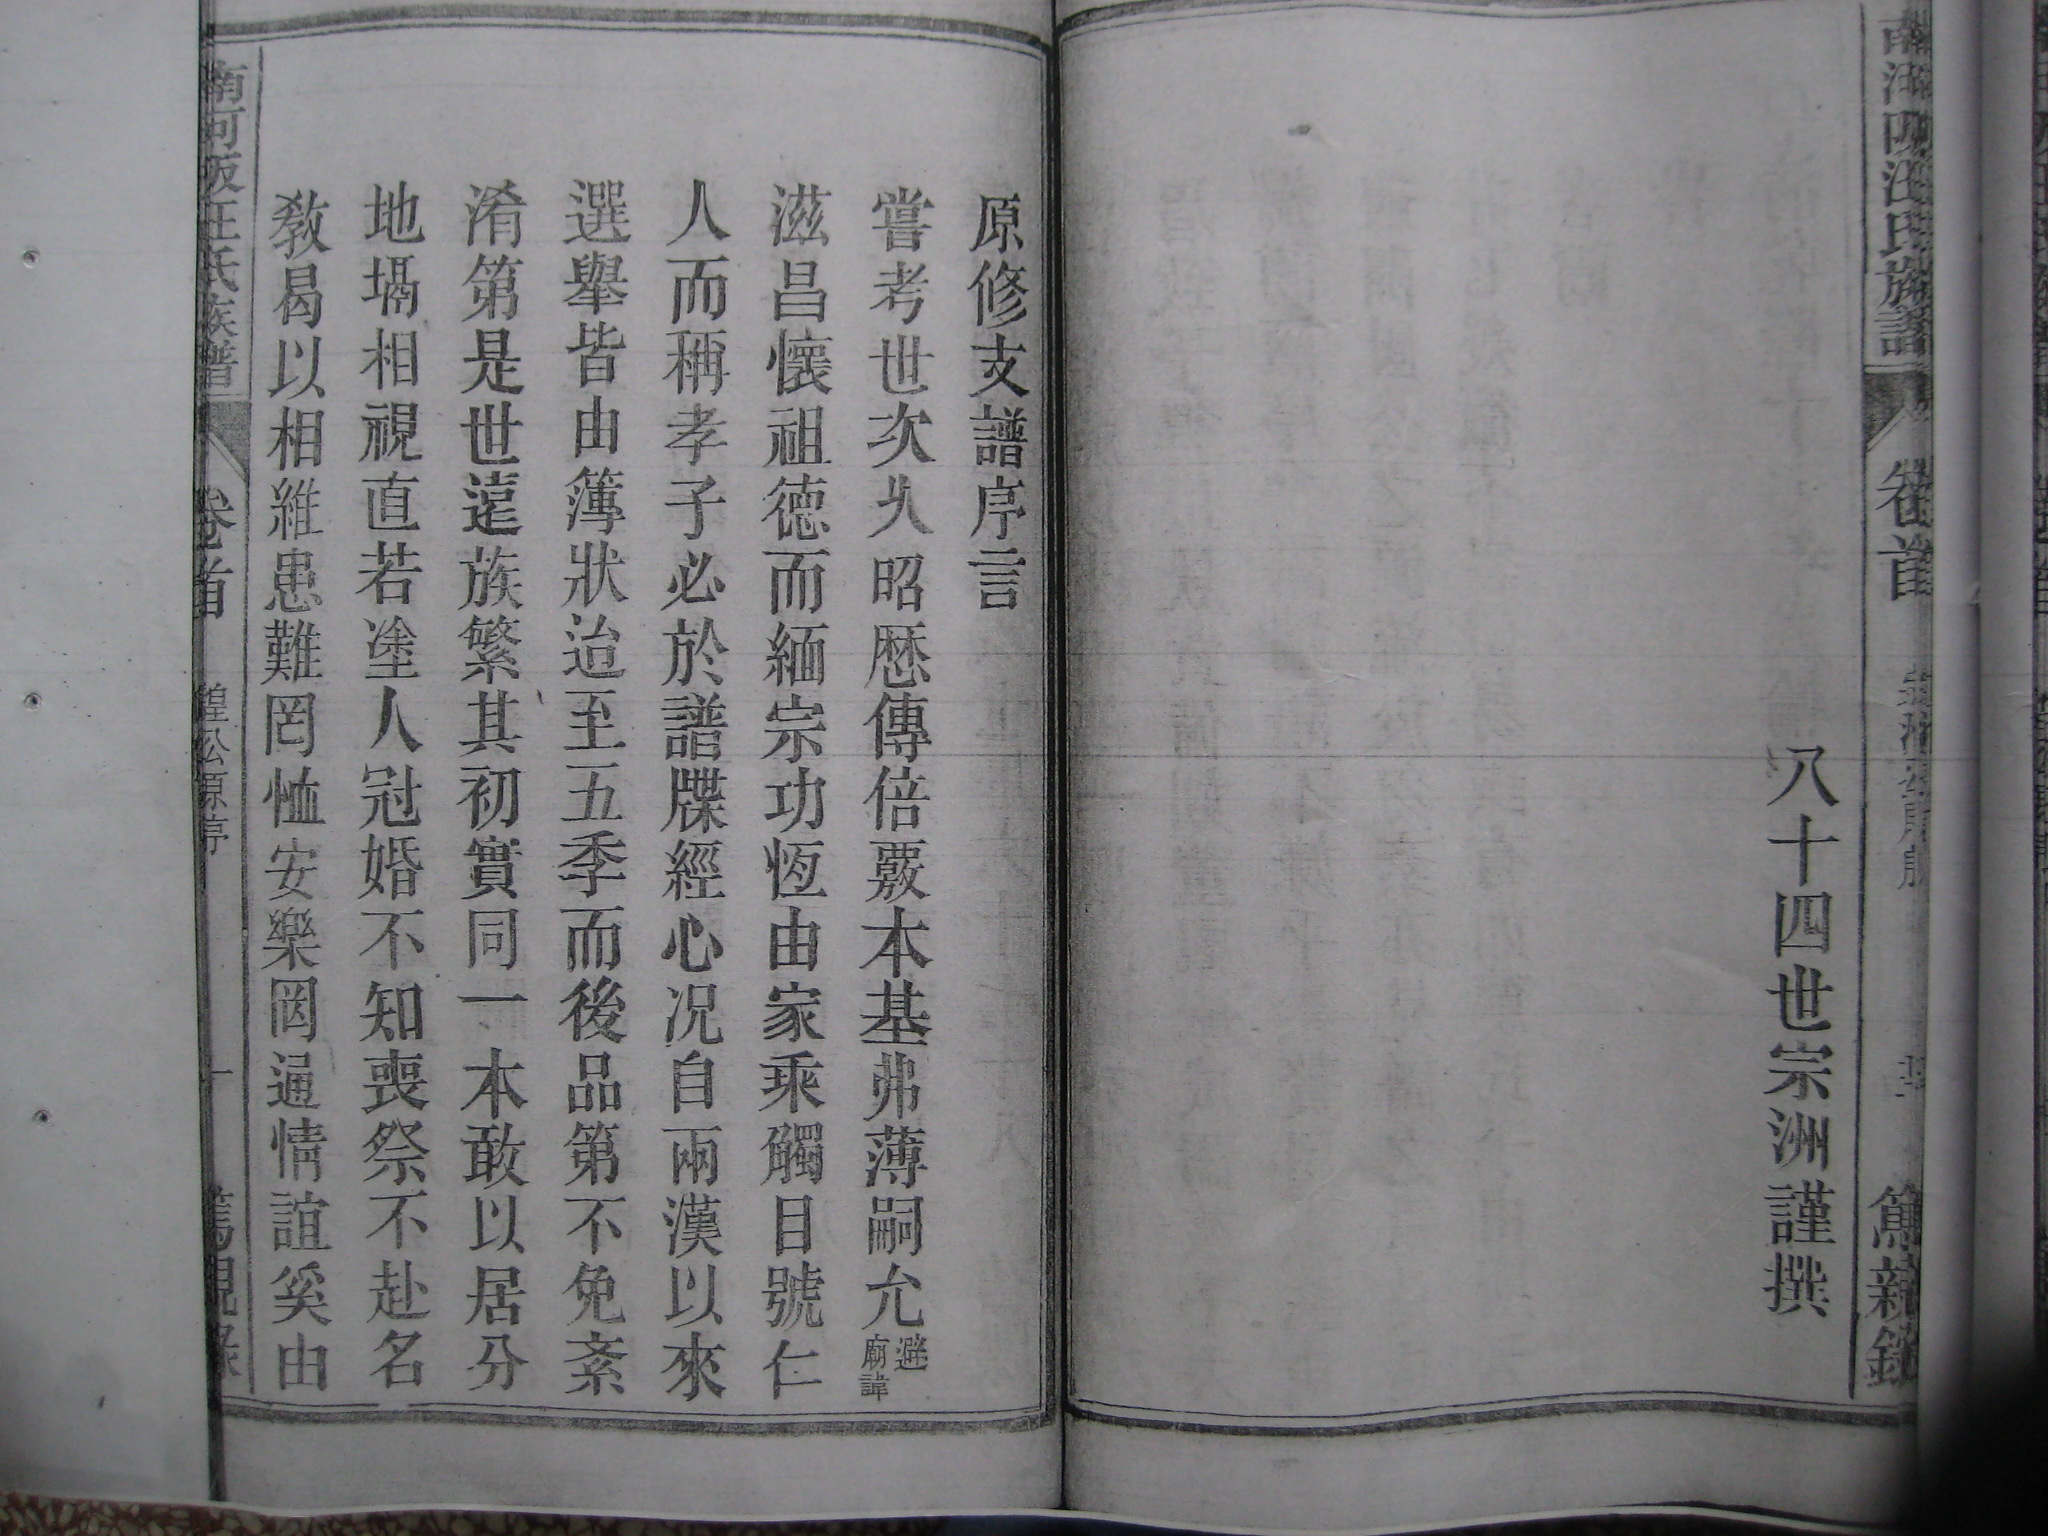 南河阪汪氏族譜 卷首 篤親錄
八十四世宗洲謹撰
原修支譜序言
嘗考世次久昭歷傳倍覈本基弗薄嗣允避廟諱
滋昌懷祖德而緬宗功恆由家乘觸目號仁
人而稱孝子必於譜牒經心况自兩漢以來
選舉皆由簿狀迨至五季而後品第不免紊
淆第是世遠族繁其初實同一本敢以居分
地塥相視直若塗人冠婚不知喪祭不赴名
敎曷以相維患難罔恤安樂罔通情誼奚由
南河阪汪氏族譜 卷首 鍠公原序 十 篤親錄